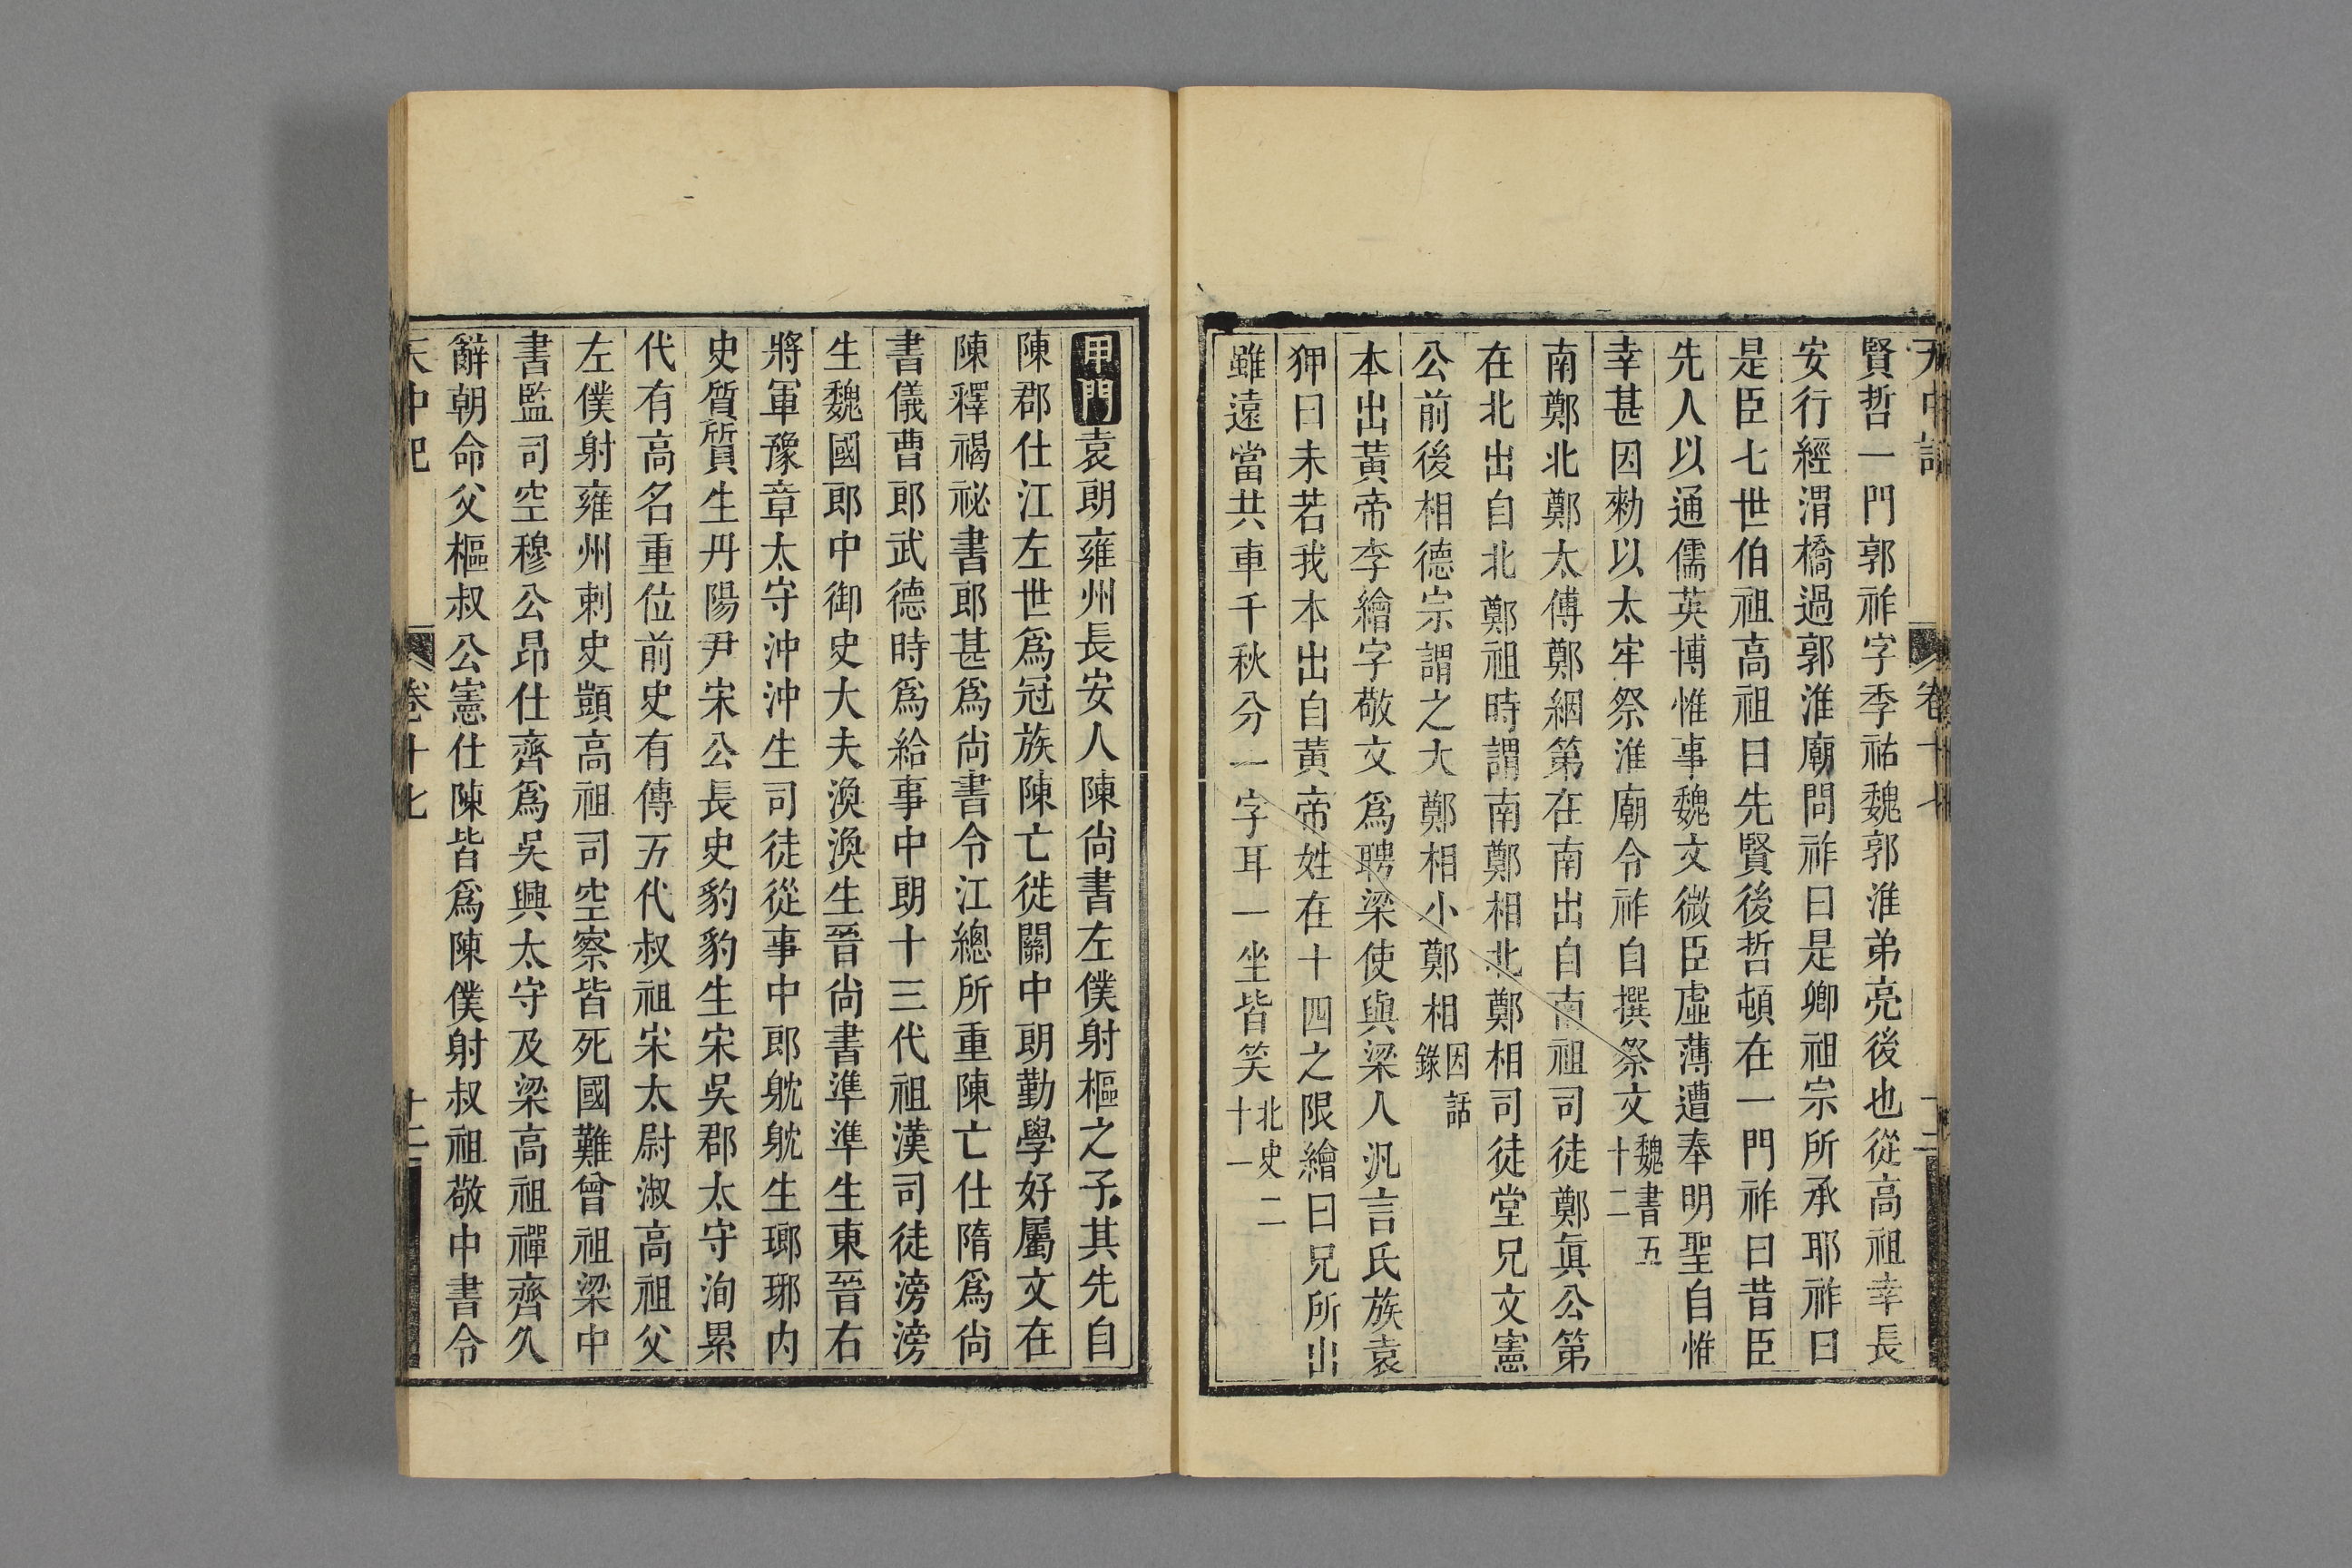 賢哲一門郭祚字季祐魏郭淮弟亮後也從高祖幸長
安行經渭橋過郭淮廟問祚曰是卿祖宗所承耶祚曰
是臣七世伯祖高祖曰先賢後哲頓在一門祚曰昔臣
先人以通儒英博惟事魏文微臣虛薄遭奉明聖自惟
幸甚因勑以太牢祭淮廟令祚自撰祭文魏書五十二
南鄭北鄭太傅鄭絪第在南出自南祖司徒鄭眞公第
在北出自北鄭祖時謂南鄭相北鄭相司徒堂兄文憲
公前後相德宗謂之大鄭相小鄭相因話錄
本出黃帝李繪字敬文爲聘梁使與梁人汎言氏族袁
狎曰未若我本出自黃帝姓在十四之限繪曰兄所出
雖遠當共車千秋分一字耳一坐皆笑北史二十一
甲門袁朗雍州長安人陳尙書左僕射樞之子其先自
陳郡仕江左世爲冠族陳亡徙關中朗勤學好屬文在
陳釋褐祕書郎甚爲尙書令江總所重陳亡仕隋爲尙
書儀曹郎武德時爲給事中朗十三代祖漢司徒滂滂
生魏國郎中御史大夫渙渙生晉尙書準準生東晉右
將軍豫章太守沖沖生司徒從事中郎躭躭生瑯琊內
史質質生丹陽尹宋公長史豹豹生宋吳郡太守洵累
代有高名重位前史有傳五代叔祖宋太尉淑高祖父
左僕射雍州刺史顗高祖司空察皆死國難曾祖梁中
書監司空穆公昂仕齊爲吳興太守及梁高祖禪齊久
辭朝命父樞叔公憲仕陳皆爲陳僕射叔祖敬中書令
天中記
卷十七
十二